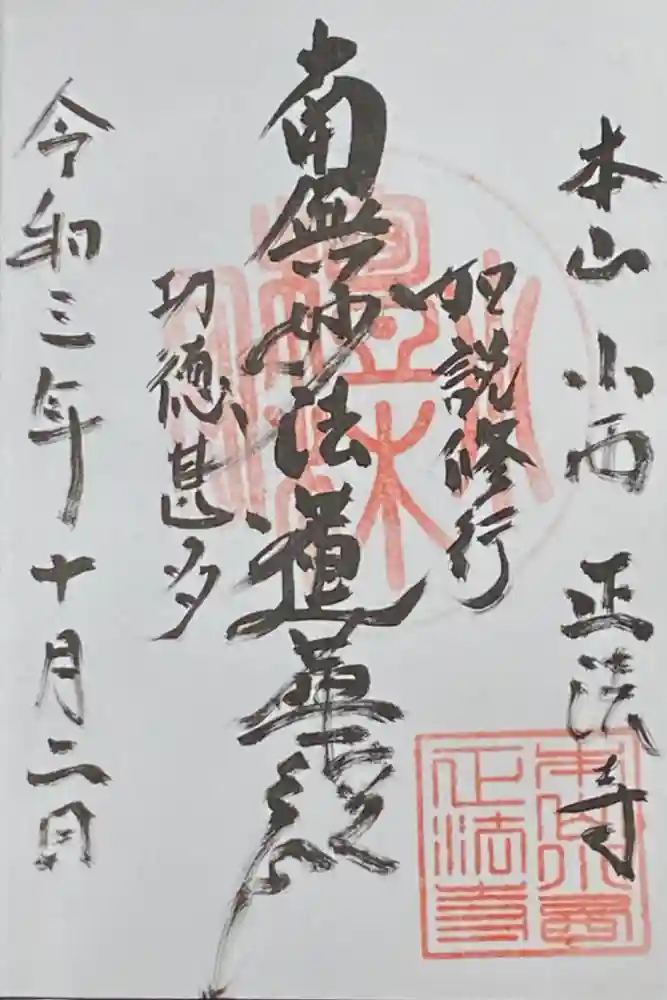 本山 小西 正法寺
如説修行
南無妙法蓮華経
功徳甚多
令和三年十月二日
正法寺